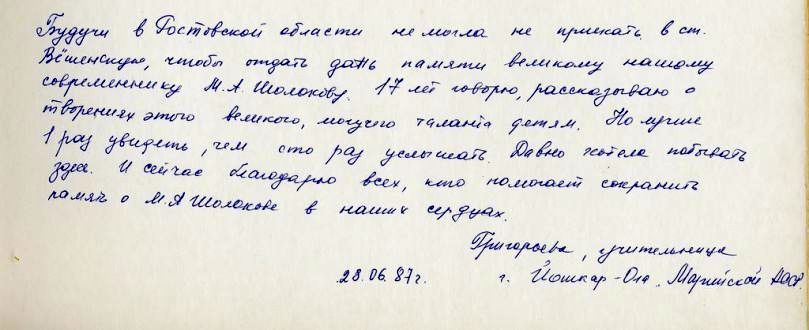 Будучи в Ростовской области не могла не приехать в ст.
Вёшенскую, чтобы отдать дань памяти великому нашому
современнику М.А. Шолохову. 17 лет говорю, рассказываю о
творениях этого великого, могучего таланта детям. Но лучше
1 раз увидеть, чем сто раз услышать. Давно хотела побывать
здесь. И сейчас благодарю всех, кто помогает сохранить
память о М.А Шолохове в наших сердцах.
Григорьева, учительница
28.06.87г. г. Йошкар-Ола, Марийской АССР.